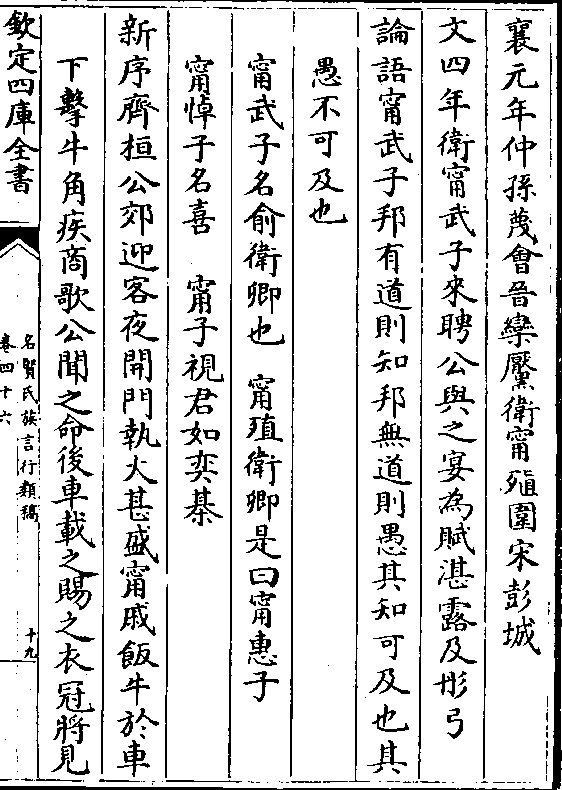 襄元年仲孫蔑會晉欒黶衛甯殖圍宋彭城
文四年衛甯武子來聘公與之宴為賦湛露及彤弓
論語甯武子邦有道則知邦無道則愚其知可及也其
愚不可及也
甯武子名俞衛卿也　甯殖衛卿是曰甯惠子
甯悼子名喜　甯子視君如奕棊
新序齊桓公郊迎客夜開門執火甚盛甯戚飯牛於車
下擊牛角疾商歌公聞之命後車載之賜之衣冠將見
欽定四庫全書
名賢氏族言行類稿
卷四十六
十九